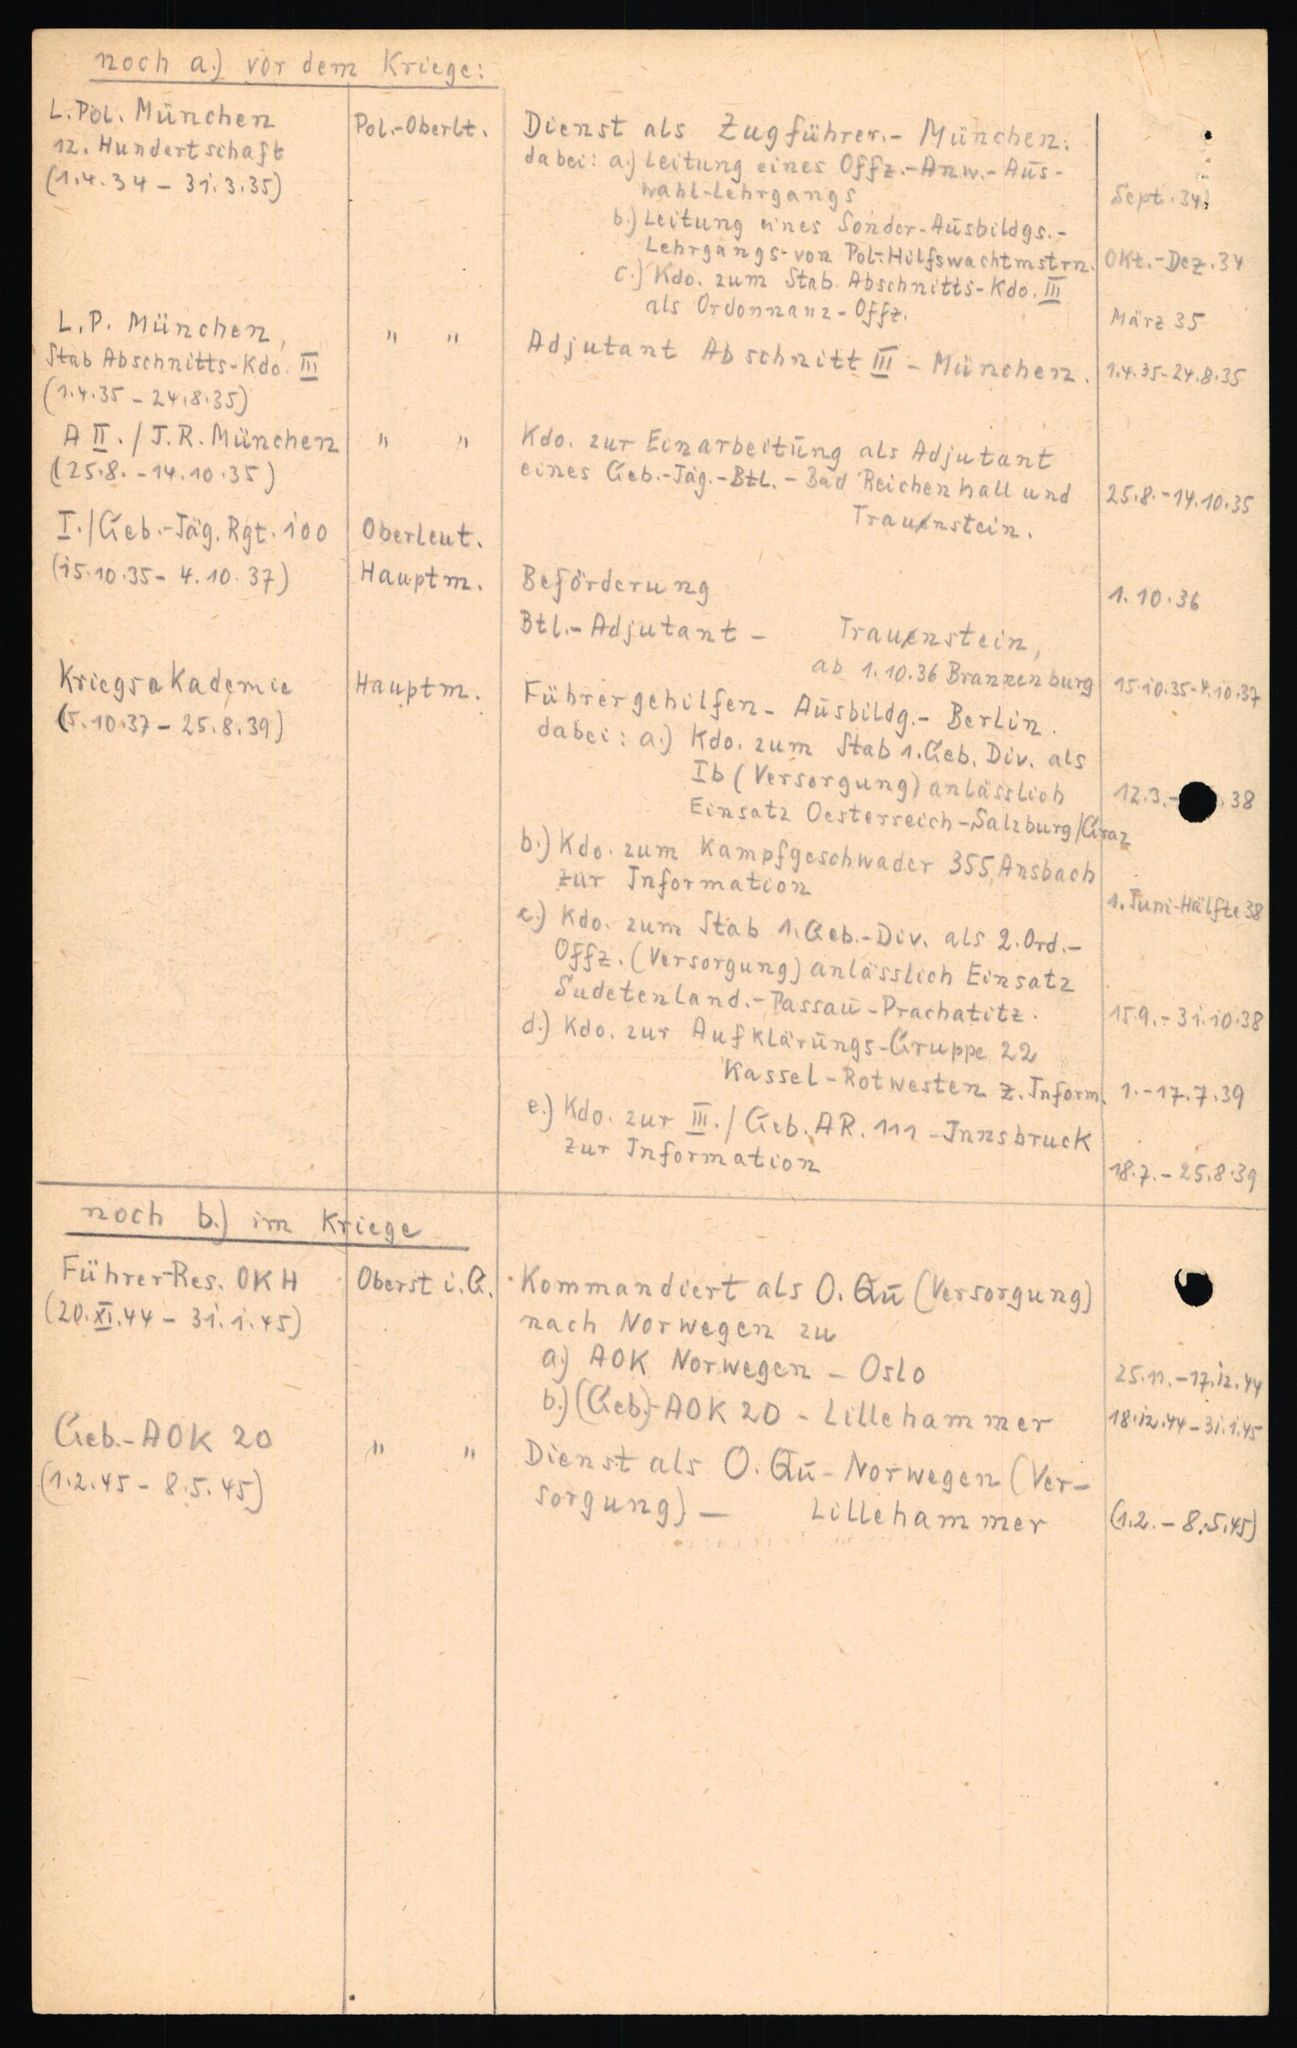 noch a.) vor dem Kriege:
L. Pol. München
12. Hundertschaft
(1.4.34 – 31.3.35)
Pol.-Oberlt.
Dienst als Zugführer.- München.
dabei: a.) Leitung eines Offz.-Anw.-Aus-
wahl-Lehrgangs
Sept. 34
b.) Leitung eines Sonder-Ausbildgs.-
Lehrgangs von Pol.-Hilfswachtmstrn.
Okt.-Dez. 34
c.) Kdo. zum Stab Abschnitts-Kdo. III
als Ordonnanz-Offz.
März 35
L.P. München,
Stab Abschnitts-Kdo. III
(1.4.35 – 24.8.35)
" "
Adjutant Abschnitt III – München.
1.4.35-24.8.35
A II. / J.R. München
(25.8. – 14.10.35)
" "
Kdo. zur Einarbeitung als Adjutant
eines Geb.-Jäg.-Btl. – Bad Reichenhall und
Traunstein.
25.8.-14.10.35
I./Geb.-Jäg. Rgt. 100
(15.10.35 – 4.10.37)
Oberleut.
Hauptm.
Beförderung
1.10.36
Btl.-Adjutant – Traunstein,
ab 1.10.36 Brannenburg
15.10.35-4.10.37
Kriegsakademie
(5.10.37 – 25.8.39)
Hauptm.
Führergehilfen-Ausbildg.- Berlin.
dabei: a.) Kdo. zum Stab 1. Geb. Div. als
Ib (Versorgung) anlässlich
Einsatz Oesterreich-Salzburg/Graz
12.3.- 38
b.) Kdo. zum Kampfgeschwader 355, Ansbach
zur Information
1. Juni-Hälfte 38
c.) Kdo. zum Stab 1. Geb.-Div. als 2. Ord.-
Offz. (Versorgung) anlässlich Einsatz
Sudetenland.-Passau-Prachatitz.
15.9.-31.10.38
d.) Kdo. zur Aufklärungs-Gruppe 22
Kassel-Rotwesten z. Inform.
1.-17.7.39
e.) Kdo. zur III. / Geb. AR. 111 – Innsbruck
zur Information
18.7.-25.8.39
noch b.) im Kriege
Führer-Res. OKH
(20.XI.44 – 31.1.45)
Oberst i. G.
Kommandiert als O. Qu (Versorgung)
nach Norwegen zu
a.) AOK Norwegen – Oslo
25.11.-17.12.44
b.) (Geb.)-AOK 20 – Lillehammer
18.12.44-31.1.45
Geb.-AOK 20
(1.2.45 – 8.5.45)
" "
Dienst als O. Qu – Norwegen (Ver-
sorgung) – Lillehammer
(1.2. – 8.5.45)